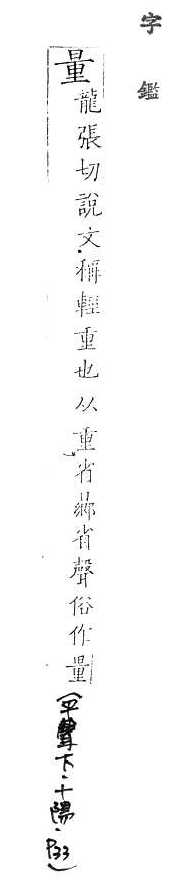 字鑑
量龍張切說文稱輕重也从重省曏省聲俗作量
(平聲下.十陽.P33)